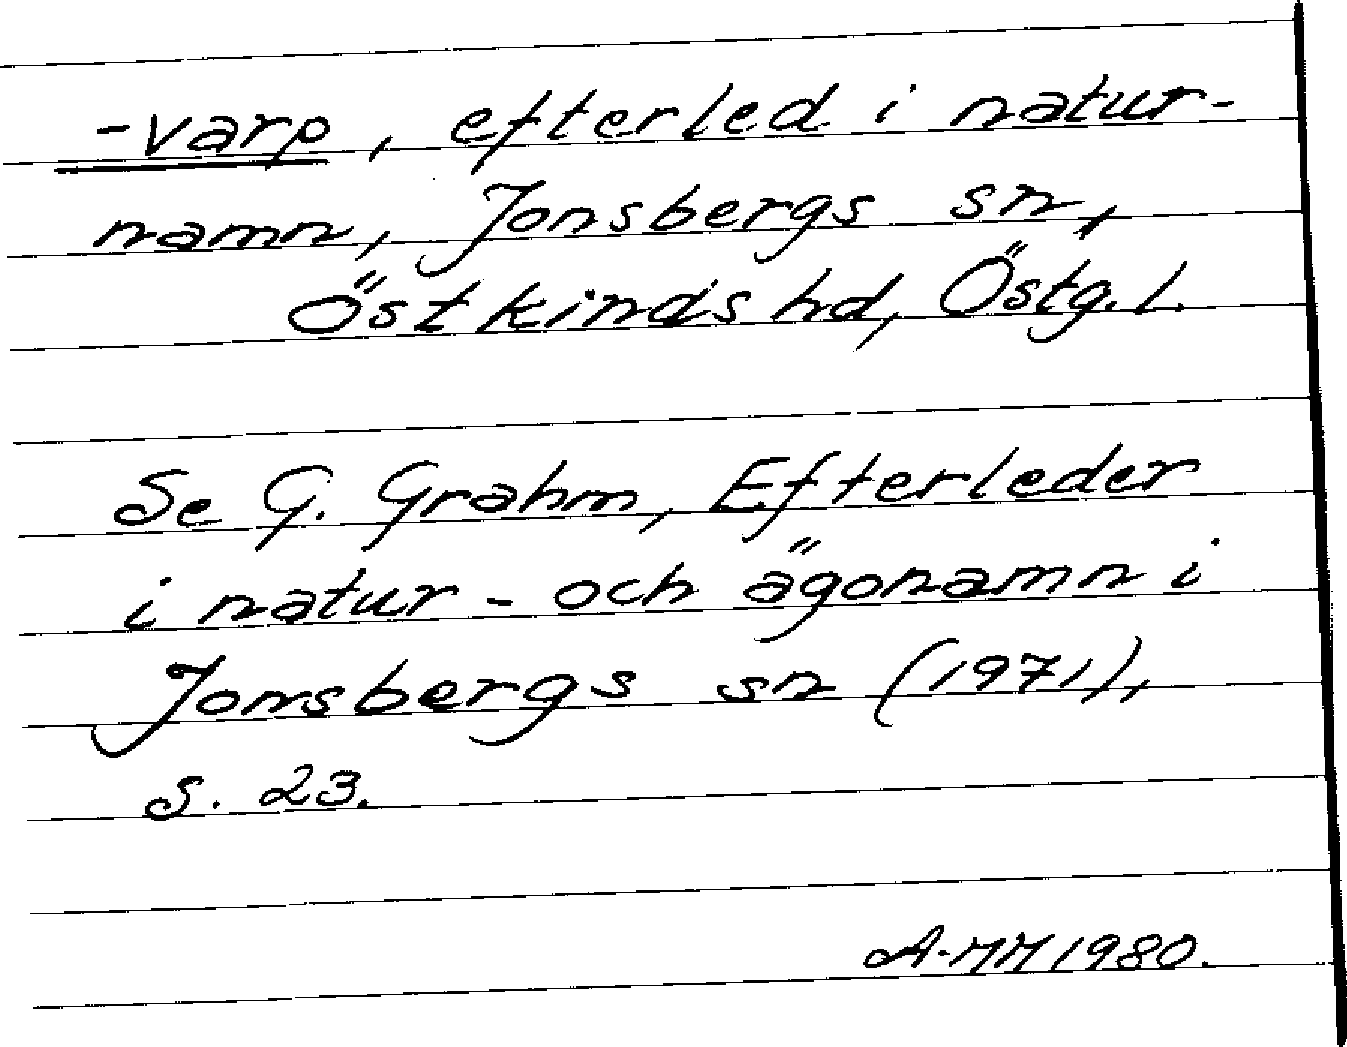 -varp, efterled i natur-
namn, Jonsbergs sn,
Östkinds hd, Östg. l.
Se G. Grahm, Efterleder
i natur- och ägonamn i
Jonsbergs sn (1971),
s. 23.
A-MM 1980.